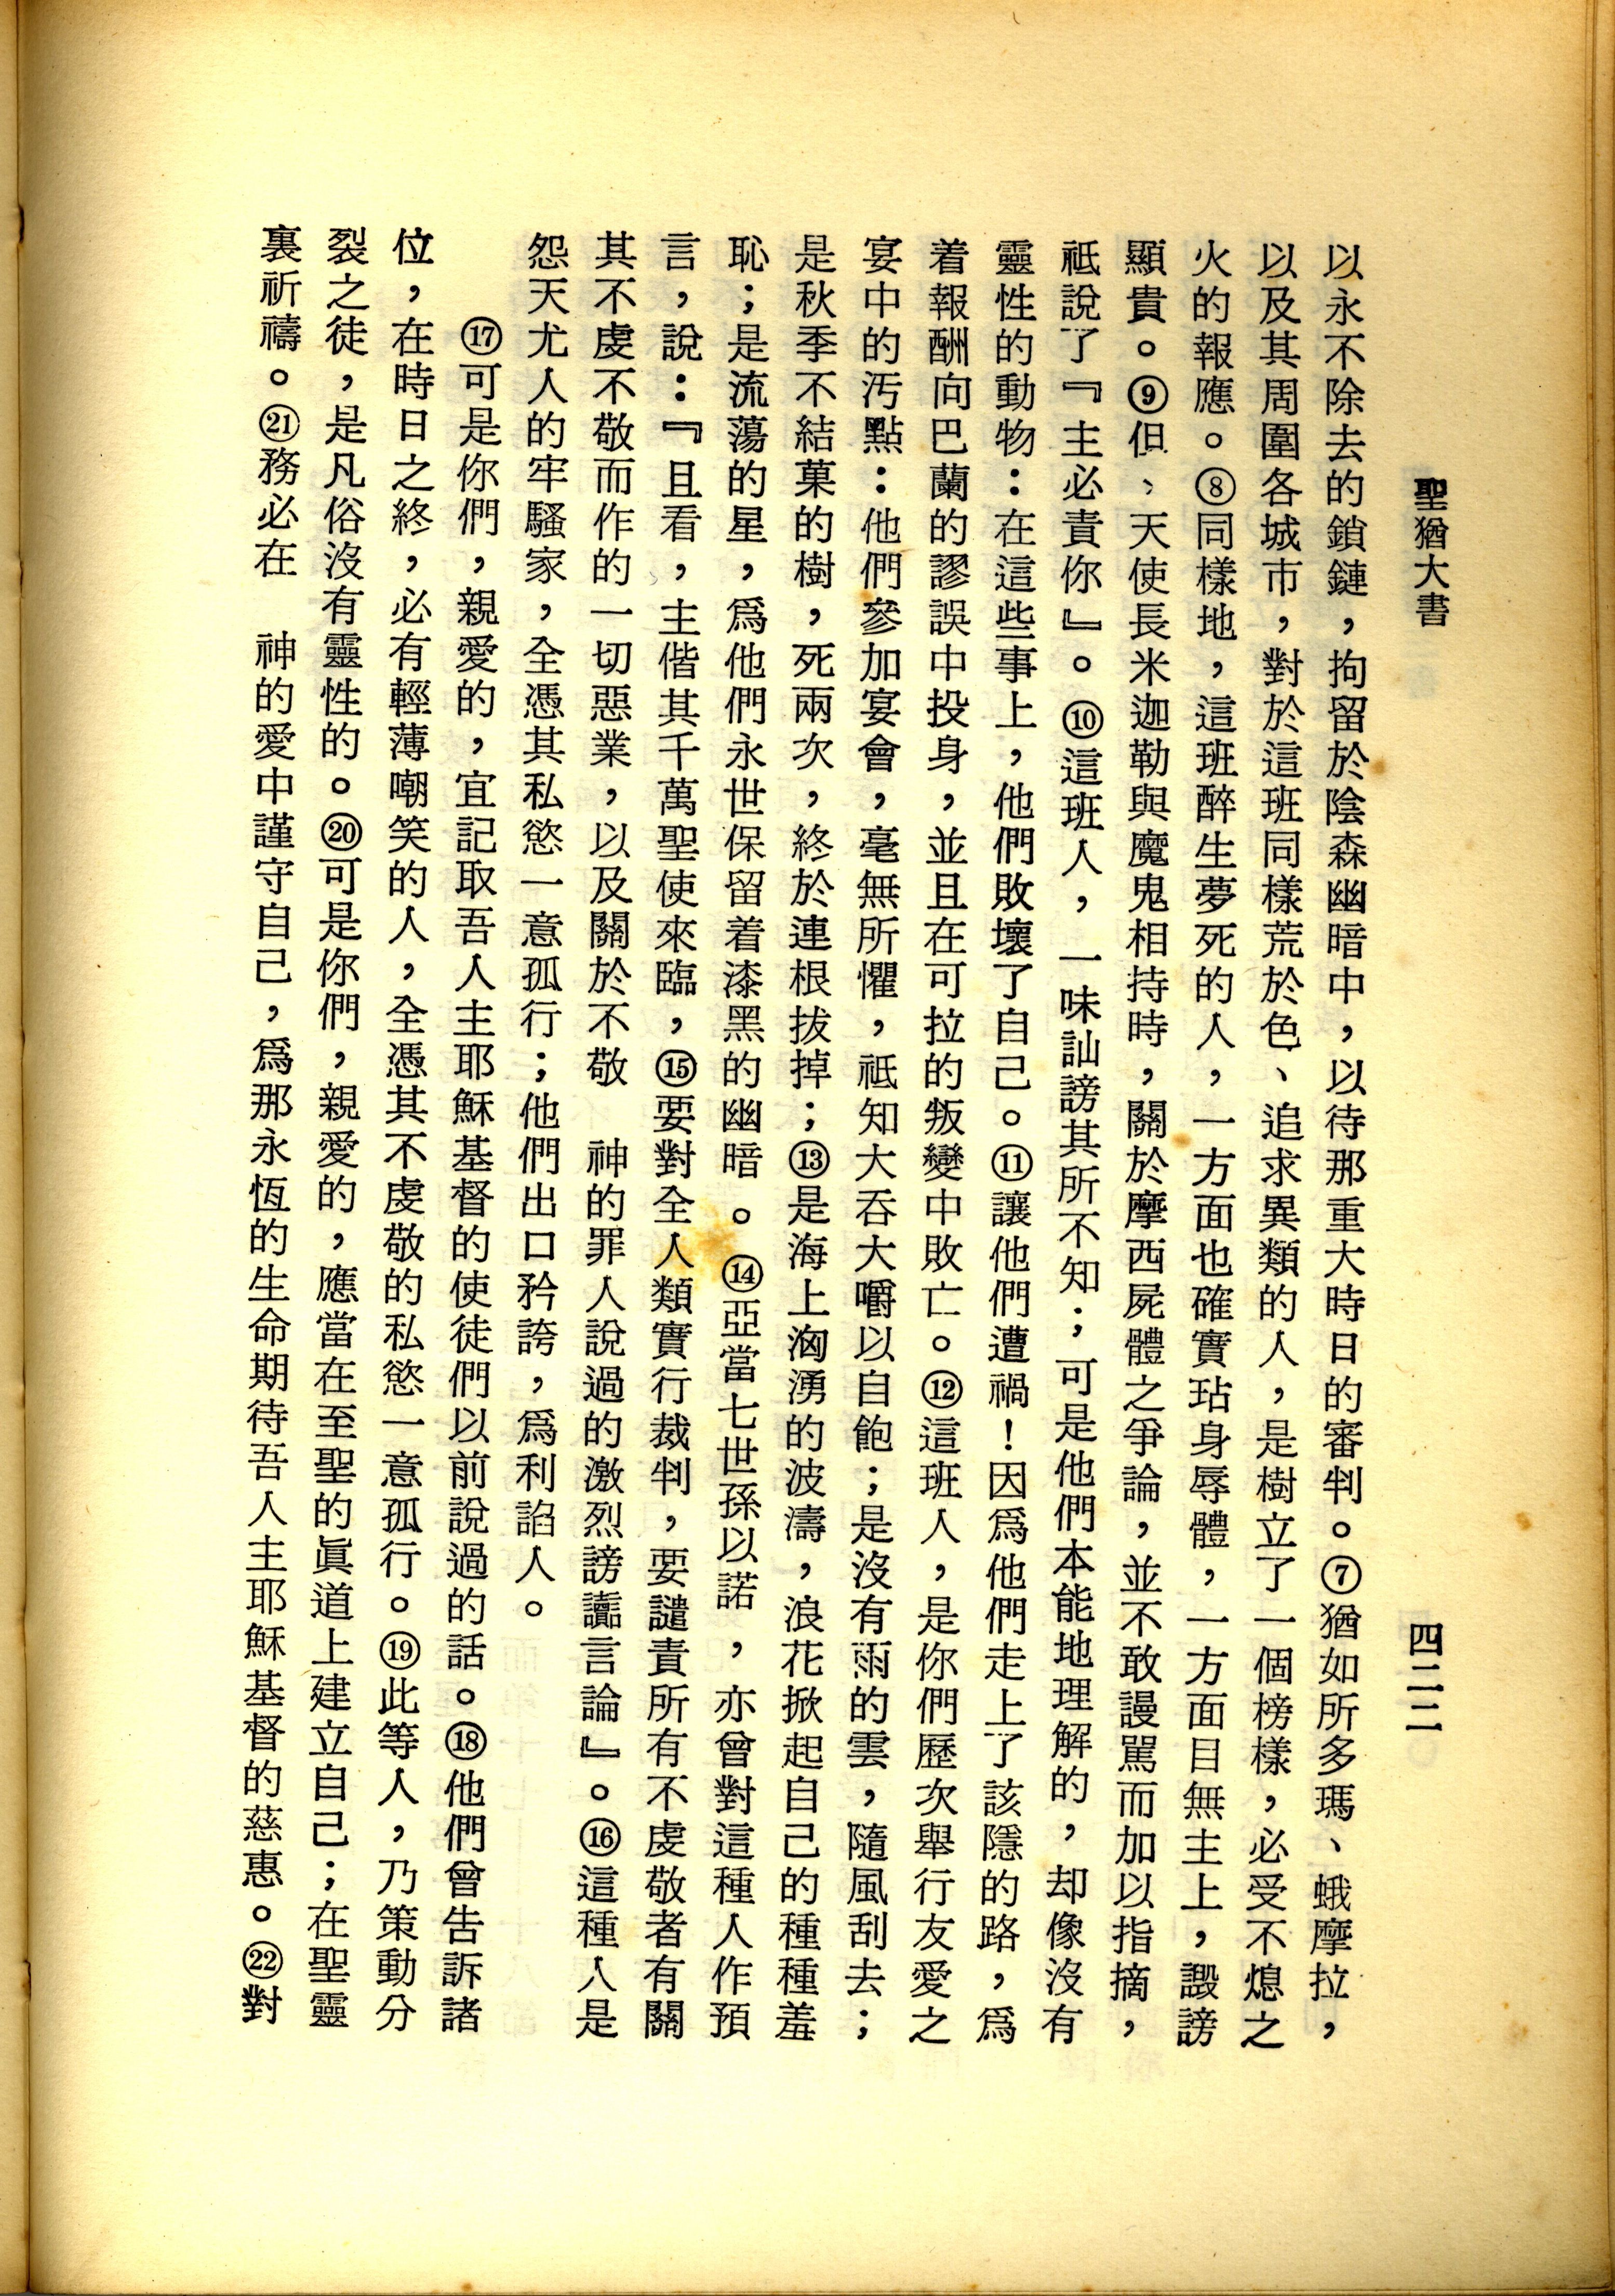 聖猶大書
四二二
以永不除去的鎖鏈，拘留於陰森幽暗中，以待那重大時日的審判。⑦猶如所多瑪、蛾摩拉，
以及其周圍各城市，對於這班同樣荒於色、追求異類的人，是樹立了一個榜樣，必受不熄之
火的報應。⑧同樣地，這班醉生夢死的人，一方面也確實玷身辱體，一方面目無主上，譭謗
顯貴。⑨但、天使長米迦勒與魔鬼相持時，關於摩西屍體之爭論，並不敢謾駡而加以指摘，
祗說了『主必責你』。⑩這班人，一味訕謗其所不知；可是他們本能地理解的，却像沒有
靈性的動物：在這些事上，他們敗壞了自己。⑪讓他們遭禍！因爲他們走上了該隱的路，爲
着報酬向巴蘭的謬誤中投身，並且在可拉的叛變中敗亡。⑫這班人，是你們歷次舉行友愛之
宴中的汚點：他們參加宴會，毫無所懼，祗知大吞大嚼以自飽；是沒有雨的雲，隨風刮去；
是秋季不結菓的樹，死兩次，終於連根拔掉；⑬是海上洶湧的波濤，浪花掀起自己的種種羞
恥；是流蕩的星，爲他們永世保留着漆黑的幽暗。⑭亞當七世孫以諾，亦曾對這種人作預
言，說：『且看，主偕其千萬聖使來臨，⑮要對全人類實行裁判，要譴責所有不虔敬者有關
其不虔不敬而作的一切惡業，以及關於不敬　神的罪人說過的激烈謗讟言論』。⑯這種人是
怨天尤人的牢騷家，全憑其私慾一意孤行；他們出口矜誇，爲利諂人。
⑰可是你們，親愛的，宜記取吾人主耶穌基督的使徒們以前說過的話。⑱他們曾告訴諸
位，在時日之終，必有輕薄嘲笑的人，全憑其不虔敬的私慾一意孤行。⑲此等人，乃策動分
裂之徒，是凡俗沒有靈性的。⑳可是你們，親愛的，應當在至聖的眞道上建立自己；在聖靈
裏祈禱。㉑務必在　神的愛中謹守自己，爲那永恆的生命期待吾人主耶穌基督的慈惠。㉒對